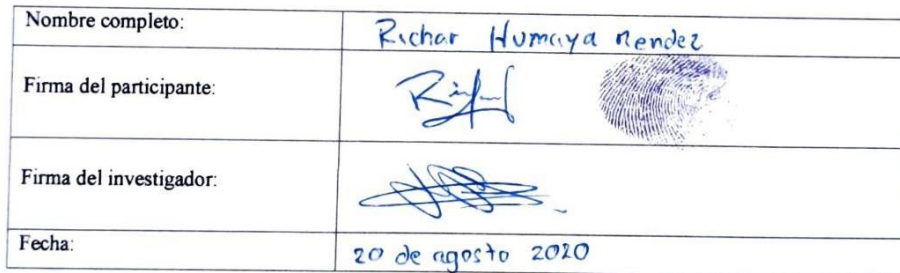 Nombre completo: Richar Humaya Mendez
Firma del participante:
Firma del investigador:
Fecha: 20 de agosto 2020